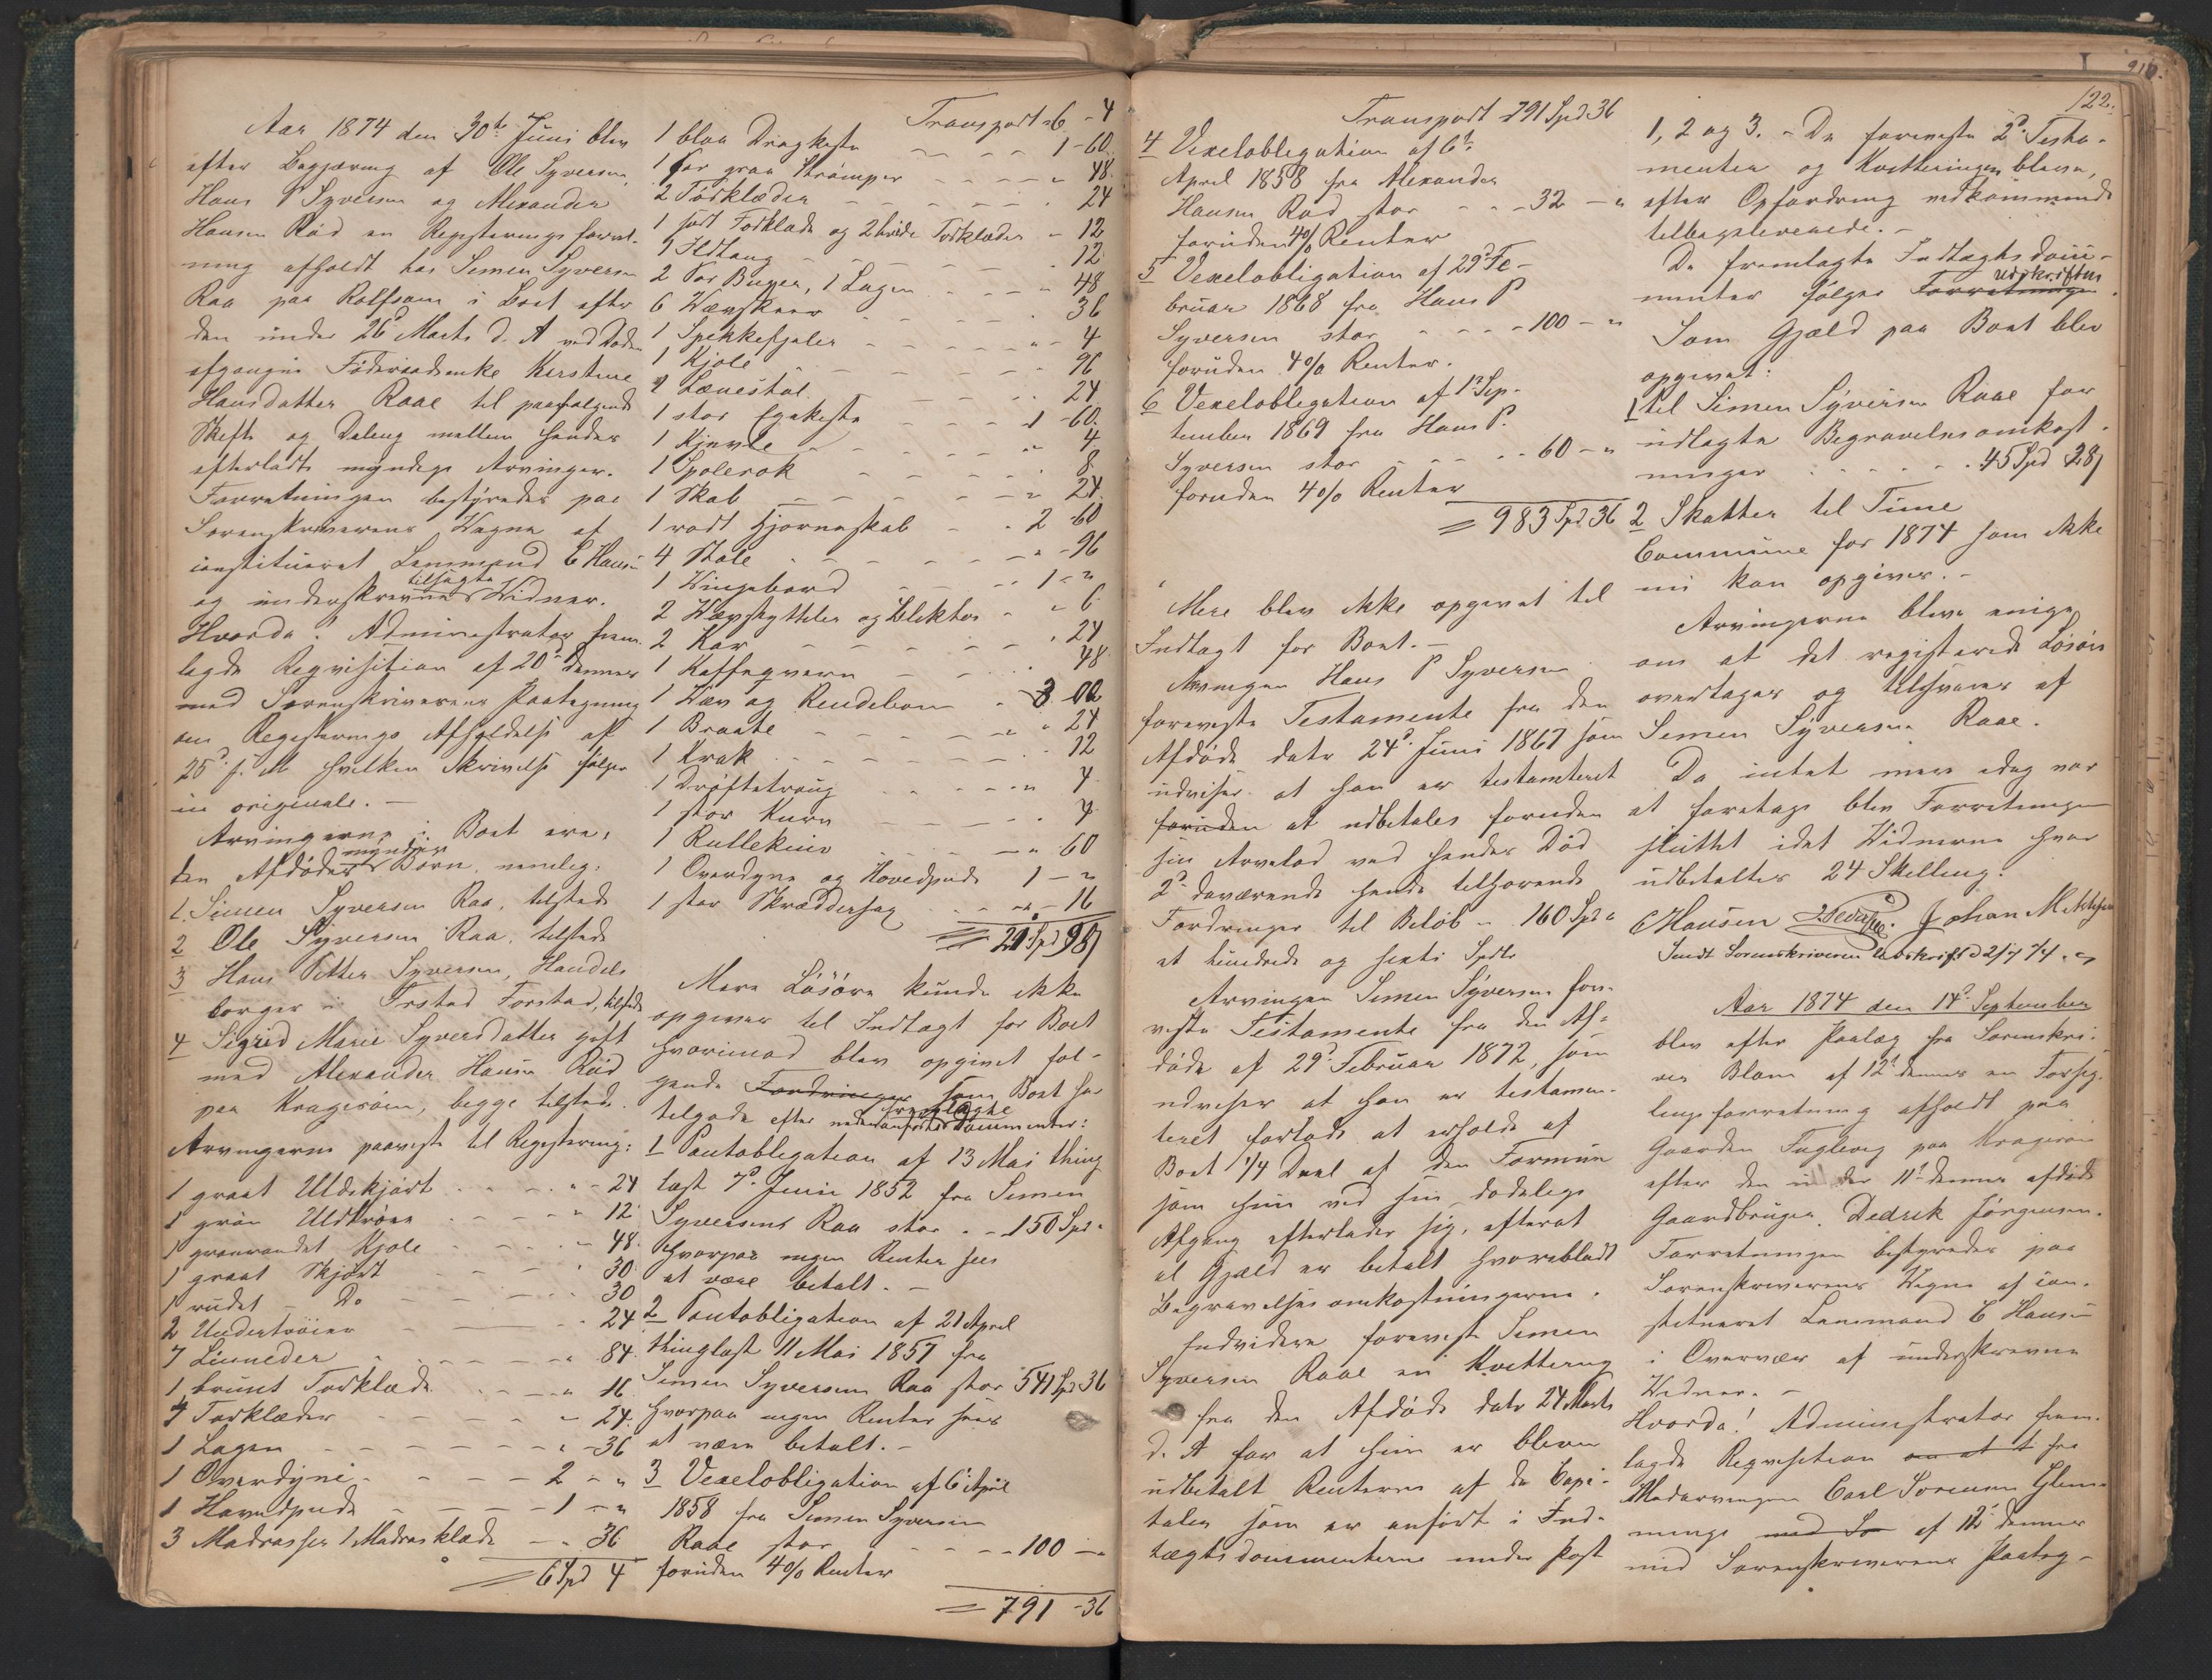 Aar 1874 den 30te Juni blev
efter Begjæring af Ole Syversen,
Hans P Syversen og Alexander
Hansen Rød en Registeringsforret-
ning afholdt hos Simen Syversen
Raa paa Rolfsøen i Boet efter
den under 26d Marts d. A ved Døden
afgangne Føderaadsenke Kirstine
Hansdatter Raae til paafølgende
Skifte og Deling mellem hendes
efterladte myndige Arvinger.
Forretningen bestyredes paa
Sorenskriverens Vegne af
constitueret Lensmand C Hansen
tilsagte
og underskrevne Vidner.
Hvorda! Administrator frem-
lagde Reqvisition af 20d dennes
med Sorenskriverens Paategning
om Registerings Afholdelse af
25d s. M hvilken Skrivelse følger
in originale. —
Arvingerne i Boet ere,
myndige
den Afdødes Børn, nemlig:
1. Simen Syversen Raa, tilstede
2 Ole Syversen Raa, tilstede
3 Hans Petter Syversen, Handels
borger i Frstad Forstad, tilstede
4 Sigrid Marie Syversdatter gift
med Alexander Hansen Rød
paa Kragerøen, begge tilstede.
Arvingerne paaviste til Registering:
1 graat Uldskjørt - 24
1 grøn Uldtrøie " 12
1 graarandet Kjole - 48
1 graat Skjørt " 30
1 rudet - Do 30
2 Undertrøier - 24
7 Linneder " 84
1 brunt Tørklæde " 16
7 Tørklæder - 24
1 Lagen " - 36
1 Overdyne 2 - "
1 Hovedpude 1 - "
3 Madrasser 1 Madrasklæde - " 36
= 6 Spd 4
Transport " 6 - 4
1 blaa Dragkiste 1 - 60
1 Par graa Strømper " 48
2 Tørklæder " 24
1 sort Tørklæde og 2 hvide Tørklæder - 12
1 Ildtang 12
2 Par Buxer, 1 Lagen " 48
6 Vævskeer " 36
1 Spekkefjøler " - 4
1 Kjole 96
1 Lænestol 24
1 stor Egekiste 1 - 60
1 Kjevle " 4
1 Spolerok " 8
1 Skab " 24
1 rødt Hjørneskab 2 60
4 Stole " - 96
1 Vingebord 1 - "
2 Vævskytteler og Blekter " 6
2 Kar " 24
1 Kaffeqvern " 48
1 Væv og Rendebom 3 00
1 Braate " 24
1 Krak 12
1 Drøftetroug " 4
1 stor Kurv " 4
1 Rullekniv - " 60
1 Overdyne og Hovedpude 1 - "
1 stor Skræddersax " - 16
= 21 Spd 98
Mere Løsøre kunde ikke
opgives til Indtægt for Boet
hvorimod blev opgivet føl-
gende Fordringer som Boet har
fremlagte
tilgode efter nedenanførte Documenter:
1 Pantobligation af 13 Mai thing
læst 7d Juni 1852 fra Simen
Syversens Raa stor - 150 Spd "
Hvorpaa ingen Renter sees
at være betalt. —
2 Pantobligation af 21 April
thinglæst 11 Mai 1857 fra
Simen Syversen Raa stor 541 Spd 36
hvorpaa ingen Renter sees
at være betalt. -
3 Vexelobligation af 6te April
1858 fra Simen Syversen
Raae stor 100 - "
foruden 4% Renter
= 791 - 36
122.
Transport 791 Spd 36
4 Vexelobligation af 6te
April 1858 fra Alexander
Hansen Rød stor - 32 - "
foruden 4% Renter
5 Vexelobligation af 29d Fe-
bruar 1868 fra Hans P
Syversen stor - 100 - "
foruden 4% Renter.
6 Vexelobligation af 1te Sep-
tember 1869 fra Hans P.
Syversen stor 60 - "
foruden 4% Renter
= 983 Spd 36
Mere blev ikke opgivet til
Indtægt for Boet. —
Arvingen Hans P Syversen
foreviste Testamente fra den
Afdøde datr 24d Juni 1867 som
udviser at han er testamteret
foruden at udbetales foruden
sin Arvelod ved hendes Død
2de daværende hende tilhørende
Fordringer til Beløb - 160 Spd "
et hundrede og sexti Spdlr
Arvingen Simen Syversen fore-
viste Testamente fra den Af-
døde af 29d Februar 1872, som
udviser at han er testamen-
teret forlods at erholde af
Boet 1/4 Deel af den Formue
som hun ved sin dødelige
Afgang efterlader sig, efterat
al Gjæld er betalt hvoriblandt
Begravelsesomkostningerne.
Endvidere foreviste Simen
Syversen Raae en Kvittering
fra den Afdøde datr 24 Marts
d. A for at hun er bleven
udbetalt Renterne af de Capi-
taler som er anført i Ind-
tægtsdocumenterne under Post
1, 2 og 3. - De foreviste 2de Testa-
menter og Kvitteringen bleve,
efter Opfordring vedkommende
tilbageleverede. —
De fremlagte Indtægtsdocu-
udskriften
menter følger Forretningen.
Som Gjæld paa Boet blev
opgivet:
1 til Simen Syversen Raae for
udlagte Begravelsesomkost-
ninger 45 Spd 28
2 Skatter til Tune
Commune for 1874 som ikke
nu kan opgives. -
Arvingerne bleve enige
om at det registerede Løsøre
overtages og tilsvares af
Simen Syversen Raae.
Da intet mere idag var
at foretage blev Forretningen
sluttet idet Vidnerne hver
udbetaltes 24 Skilling.
C Hansen Johan Mikkelsen
Sendt Sorenskriveren Udskrift d 2/7 74.
Aar 1874 den 14d September
blev efter Paalæg fra Sorenskri-
ver Blom af 12te dennes en Forseg-
lingsforretning afholdt paa
Gaarden Fuglevig paa Kragerøen
efter den under 11te dennes afdøde
Gaardbruger Dedrek Jørgensen.
Forretningen bestyredes paa
Sorenskriverens Vegne af con-
stitueret Lensmand C Hansen
i Overvær af underskrevne
Vidner. —
Hvorda! Administrator frem-
lagde Reqvisition om at fra
Medarvingen Carl Sørensen Glem-
minge med So af 12te dennes
med Sorenskriverens Paateg-